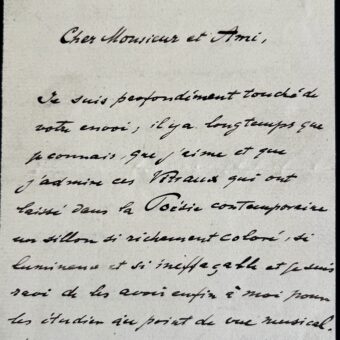 Cher Monsieur et Ami,
Je suis profondément touché de
votre envoi; il y a longtemps que
je connais, que j'aime et que
j'admire ces Vitraux qui ont
laissé dans la Poésie contemporaine
un sillon si richement coloré, si
lumineux et si ineffaçable et je suis
ravi de les avoir enfin à moi pour
les étudier au point de vue musical.